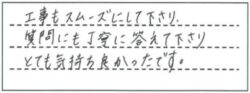 工事もスムーズにして下さり、
質問にも丁寧に答えて下さり
とても気持ち良かったです。